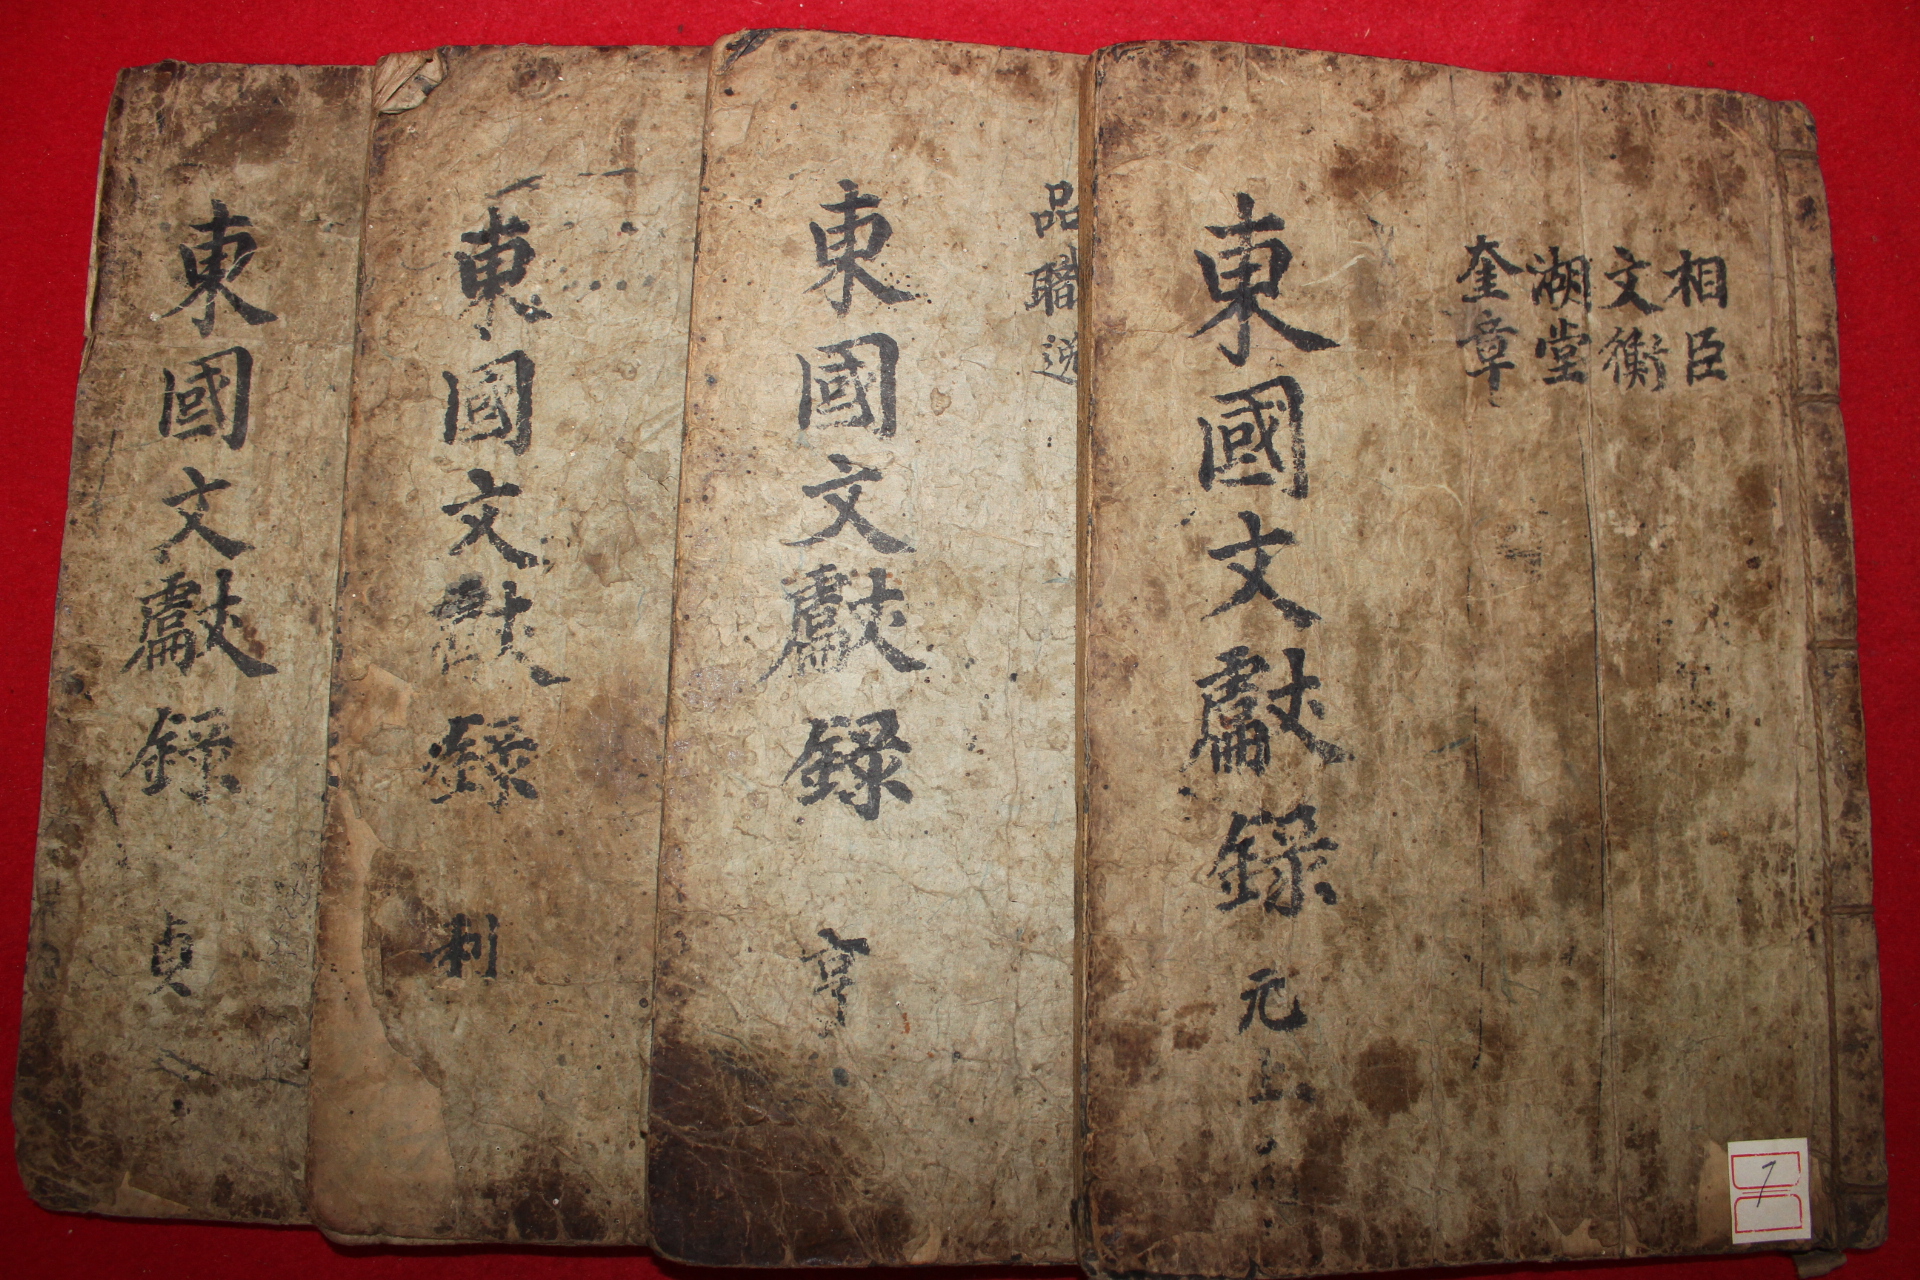 相臣
文衡
湖堂
奎章
東國文獻録 元上
品職
東國文獻録 亨
東國文獻録 利
東國文獻録 貞